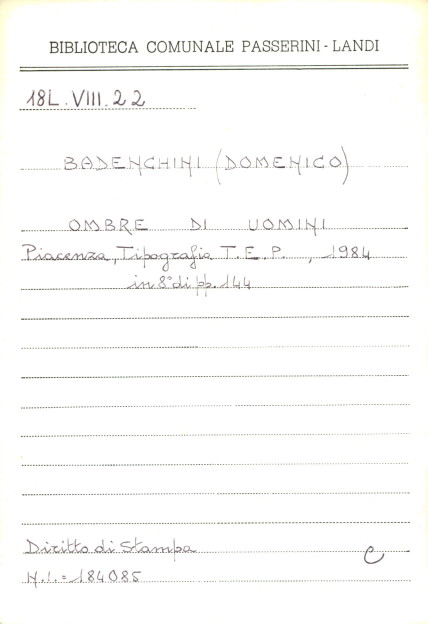 BIBLIOTECA COMUNALE PASSERINI - LANDI
18L.VIII.22
BADENCHINI (DOMENICO)
OMBRE DI UOMINI
Piacenza, Tipografia T.E.P. , 1984
in 8° di pp. 144
Diritto di Stampa
C
N.I.= 184085